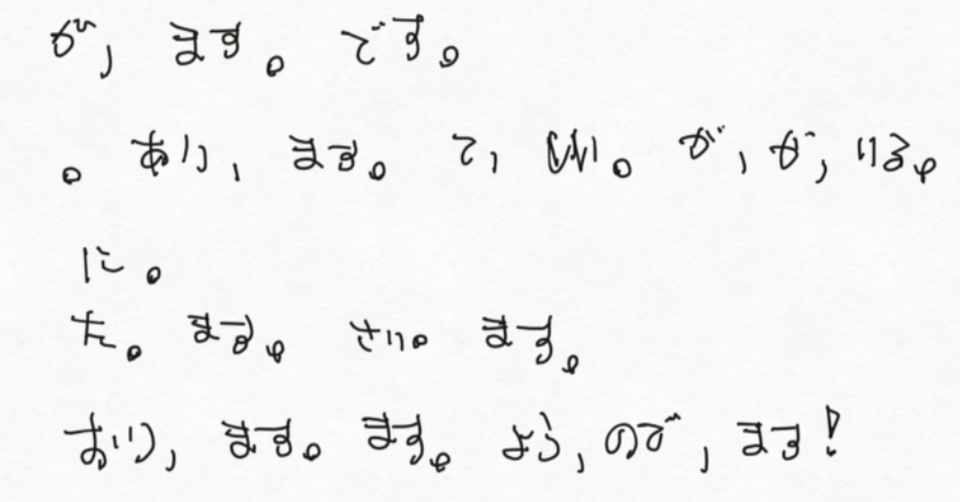 が、ます。です。
。あり、ます。て、しい。が、が、いる。
に。
た。ます。さい。ます。
おり、ます。ます。よう、ので、ます!